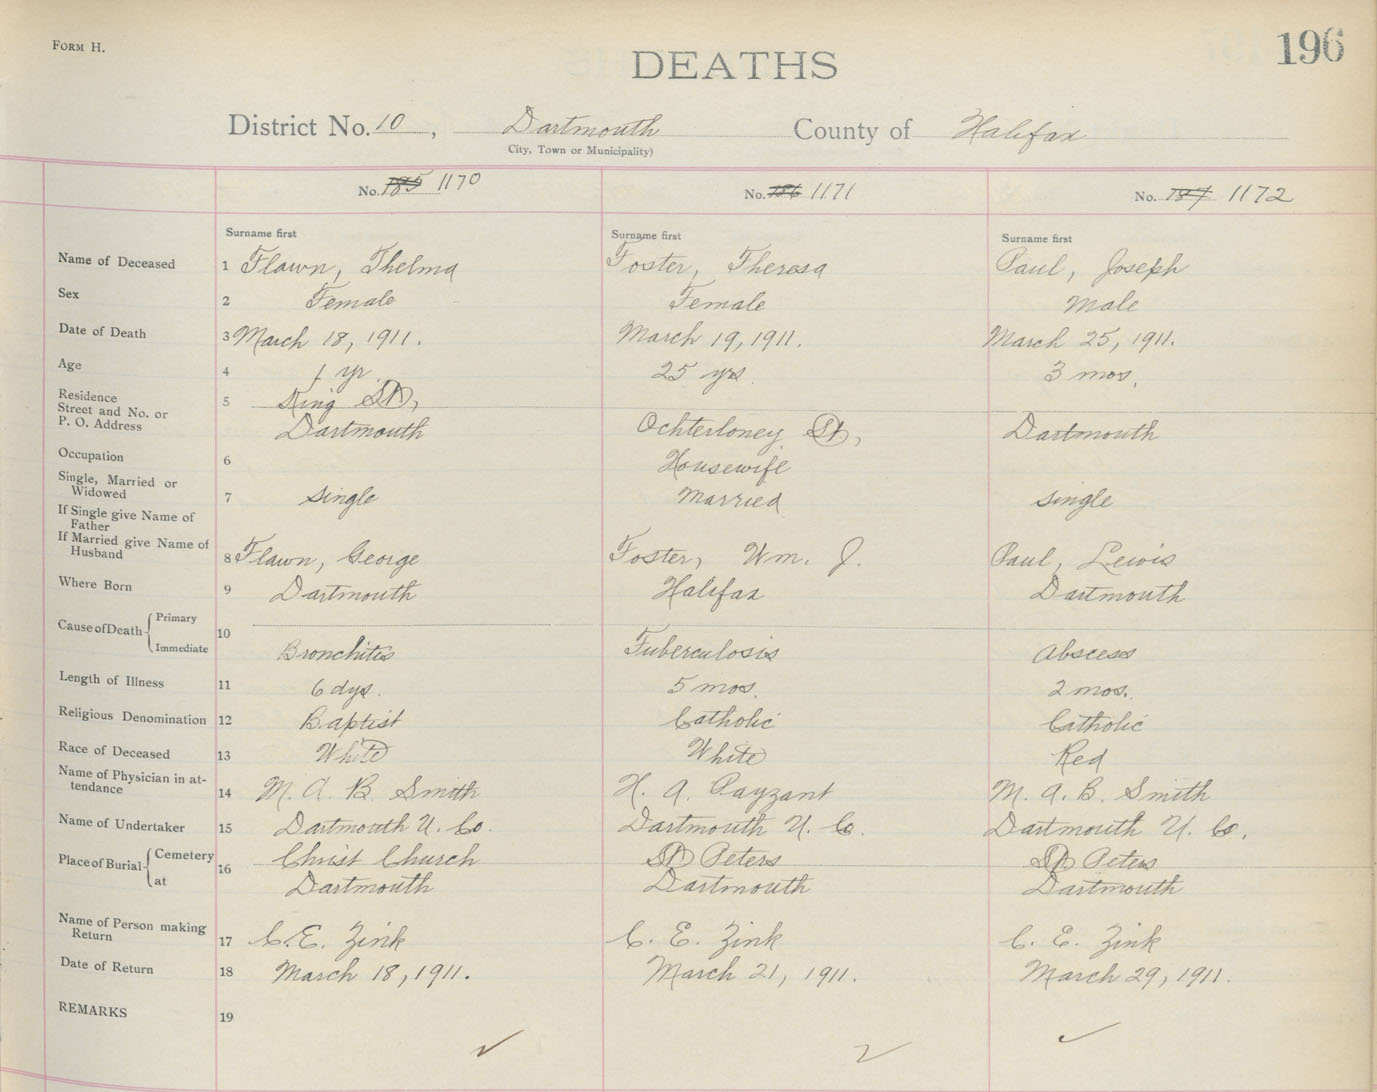 FORM H.
196
DEATHS
District No. 10, Dartmouth County of Halifax
City, Town or Municipality)
No. 185 1170 No. 186 1171 No. 187 1172
Surname first Surname first Surname first
Name of Deceased 1 Flawn, Thelma Foster, Theresa Paul, Joseph
Sex 2 Female Female Male
Date of Death 3 March 18, 1911. March 19, 1911. March 25, 1911.
Age 4 1 yr. 25 yrs. 3 mos.
Residence 5 King St,
Street and No. or
P. O. Address Dartmouth Ochterloney St, Dartmouth
Occupation 6 Housewife
Single, Married or
Widowed 7 Single Married Single
If Single give Name of
Father
If Married give Name of
Husband 8 Flawn, George Foster, Wm. J. Paul, Lewis
Where Born 9 Dartmouth Halifax Dartmouth
Cause of Death Primary 10
Immediate Bronchitis Tuberculosis Abscess
Length of Illness 11 6 dys. 5 mos. 2 mos.
Religious Denomination 12 Baptist Catholic Catholic
Race of Deceased 13 White White Red
Name of Physician in at-
tendance 14 M. A. B. Smith H. A. Payzant M. A. B. Smith
Name of Undertaker 15 Dartmouth U. Co. Dartmouth U. Co. Dartmouth U. Co.
Place of Burial Cemetery 16 Christ Church St Peters St Peters
at Dartmouth Dartmouth Dartmouth
Name of Person making
Return 17 C. E. Zink C. E. Zink C. E. Zink
Date of Return 18 March 18, 1911. March 21, 1911. March 29, 1911.
REMARKS 19